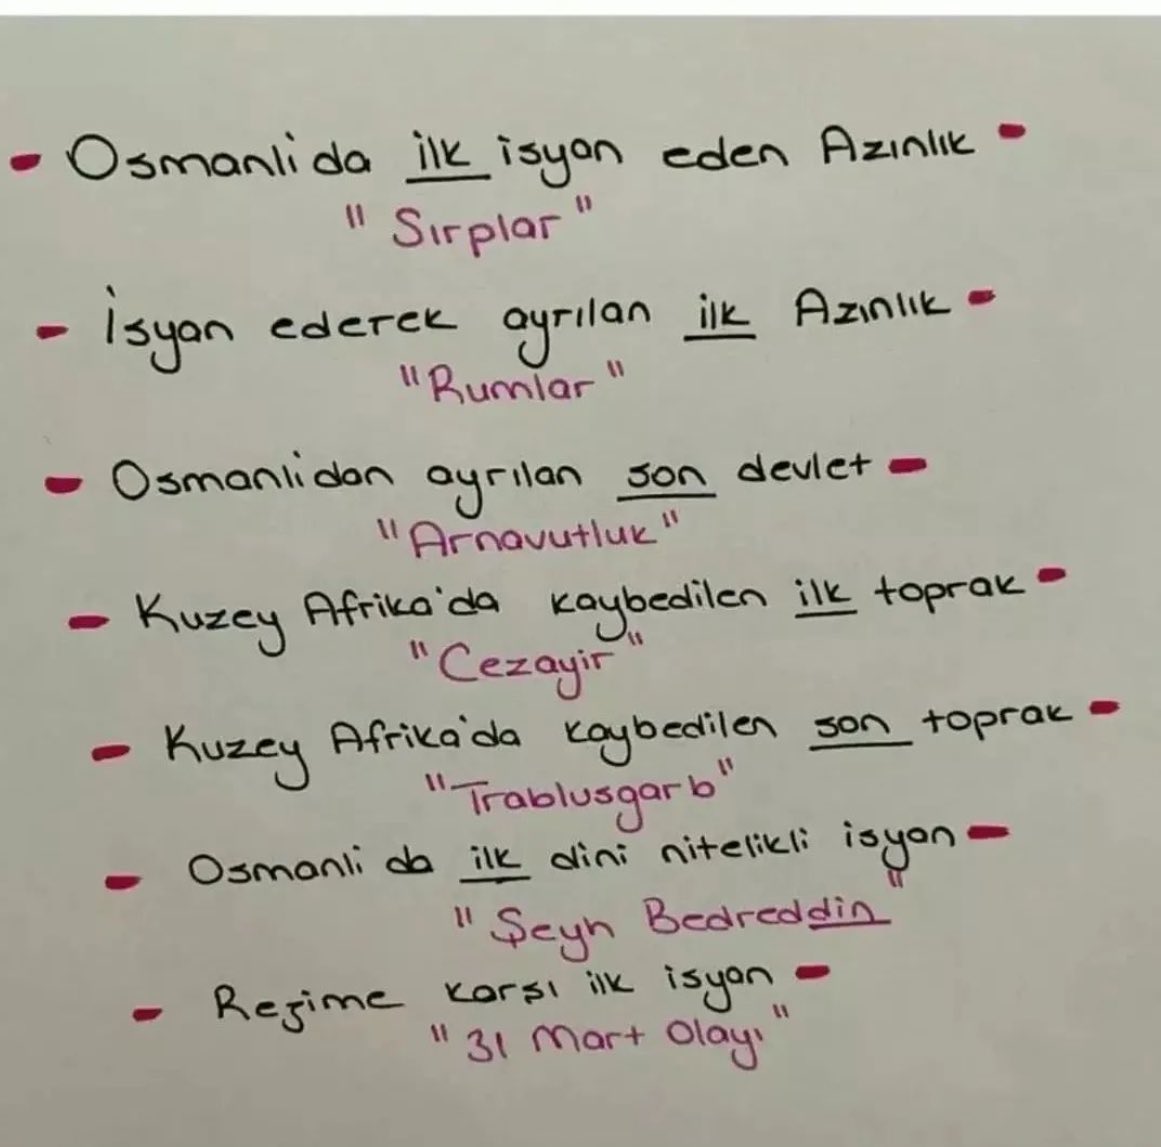 - Osmanlida ilk isyan eden Azınlık -
"Sırplar"
- İsyan ederek ayrılan ilk Azınlık -
"Rumlar"
- Osmanlidan ayrılan son devlet -
"Arnavutluk"
- Kuzey Afrika'da kaybedilen ilk toprak -
"Cezayir"
- Kuzey Afrika'da kaybedilen son toprak -
"Trablusgarb"
- Osmanli da ilk dini nitelikli isyan -
"Şeyh Bedreddin"
- Rejime karşı ilk isyan -
"31 Mart Olayı"